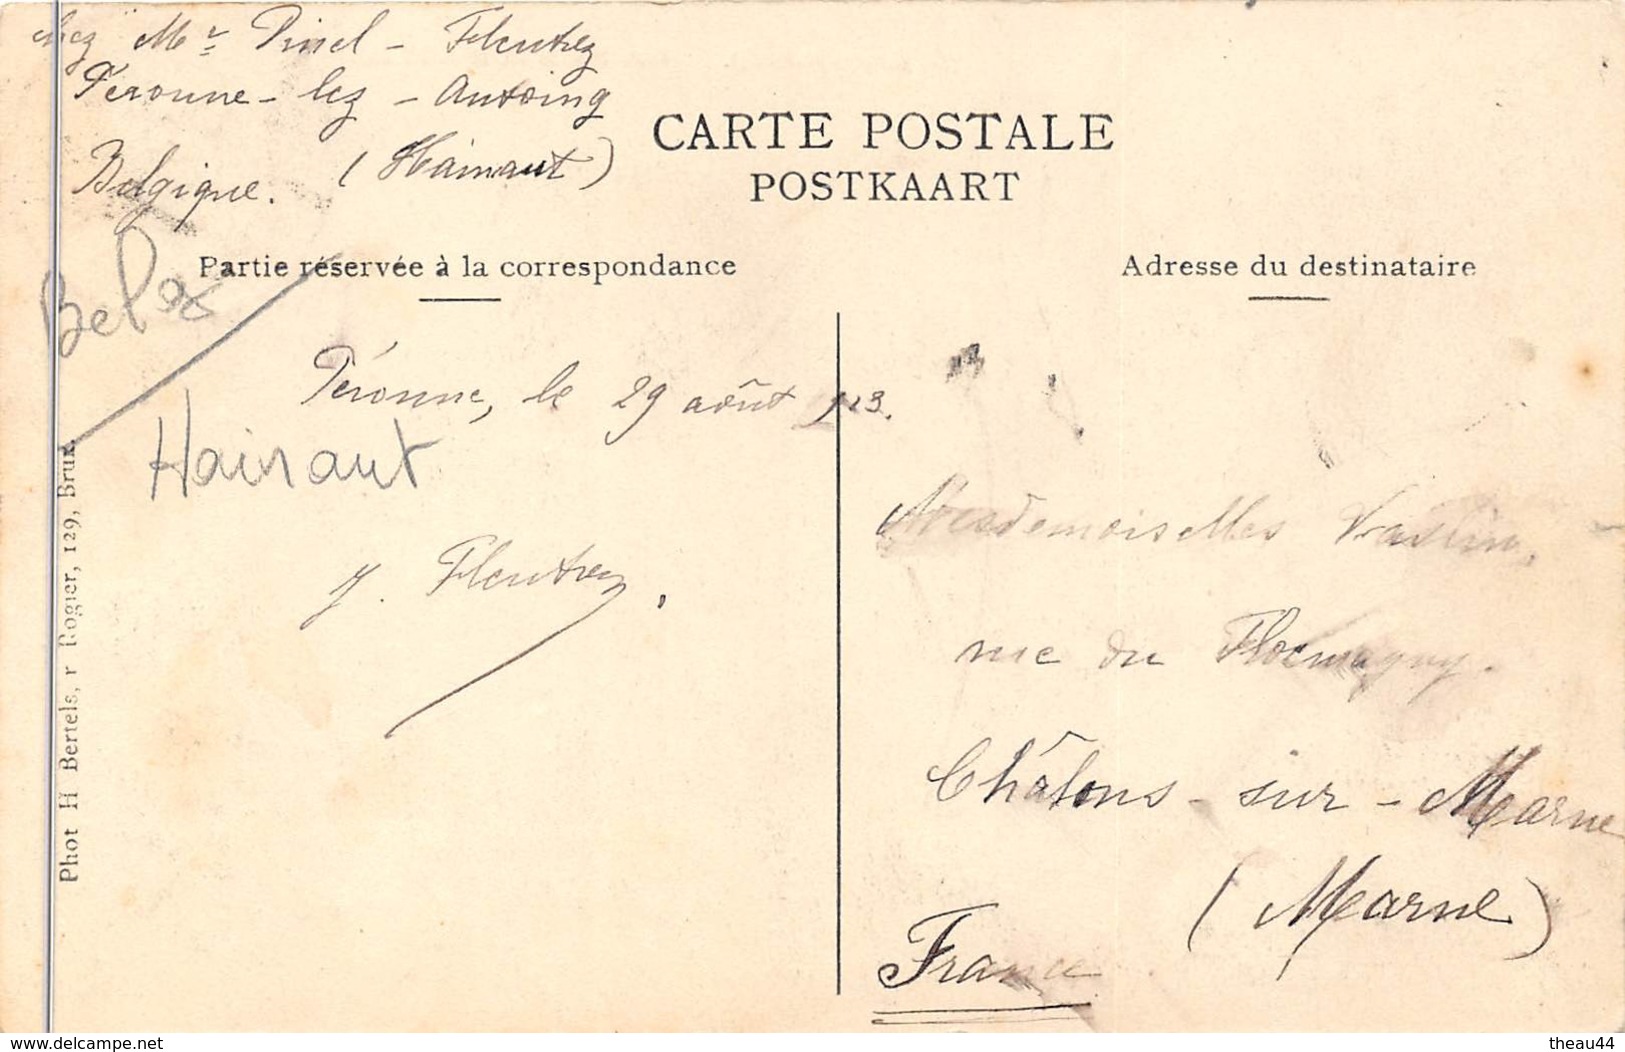 chez Mr Pinel - Fleutrez
Péronne - lez - Antoing
Belgique. (Hainaut)
CARTE POSTALE
POSTKAART
Partie réservée à la correspondance
Adresse du destinataire
Belg
Hainaut
Péronne, le 29 août
J. Fleutrez,
Mesdemoiselles
rue du
Châlons - sur - Marne
(Marne)
France
Phot H Bertels, r Rogier, 129, Brux.
www.delcampe.net
theau44